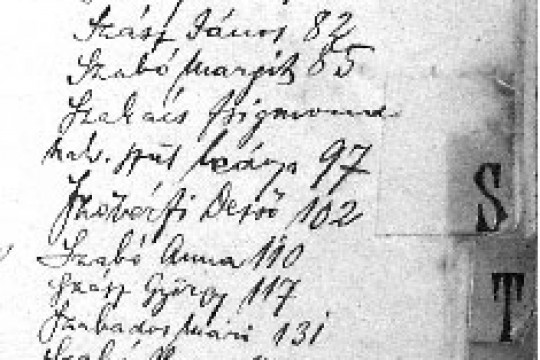 Szász János 82
Szabó Margit 85
Szakács Zsigmond
97
Dezső 102
Szabó Anna 110
Szász György 117
Szabados Mári 131
S
T